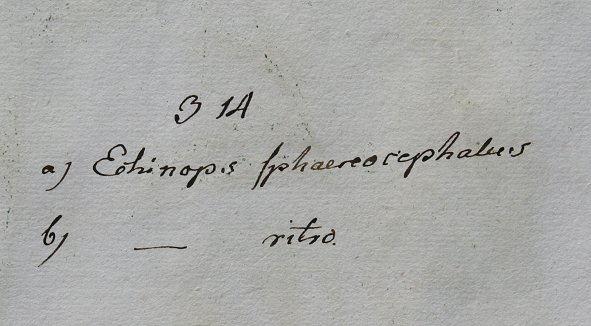 314
a) Echinops sphaereocephalus
b) — ritro.